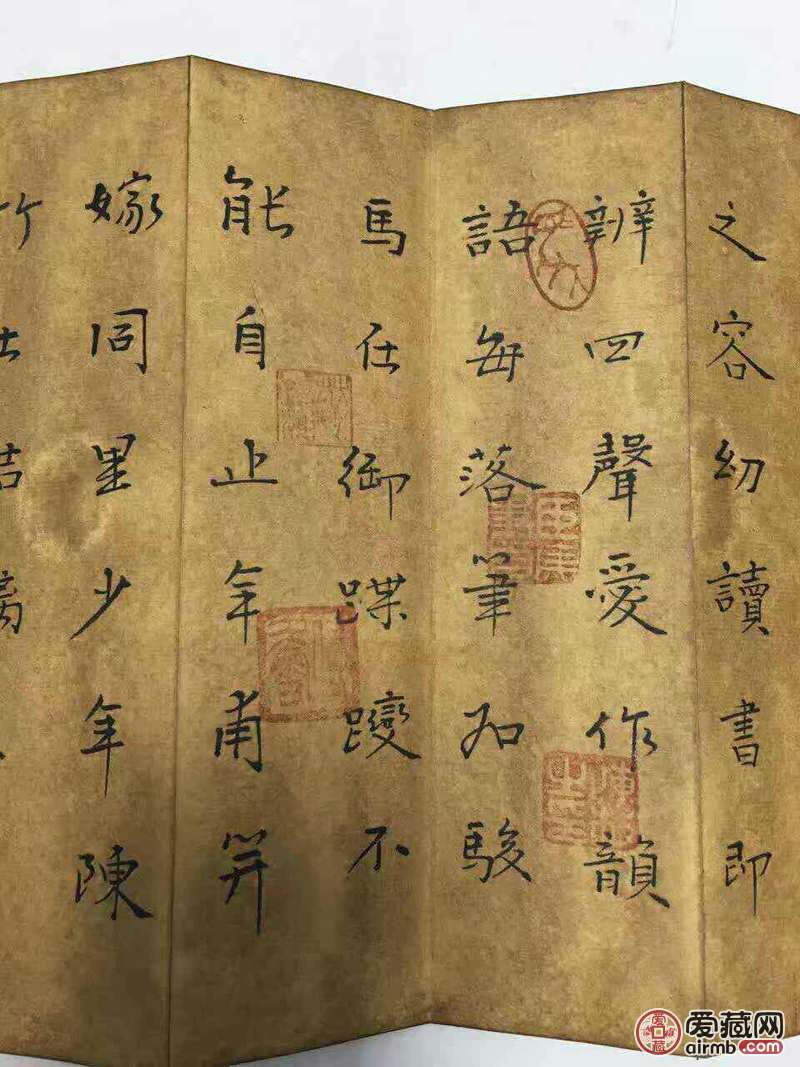 之容幼讀書即
辨四聲愛作韻
語每落筆如駿
馬任御蹀躞不
能自止年甫笄
嫁同里少年陳
爱藏网
airmb.com